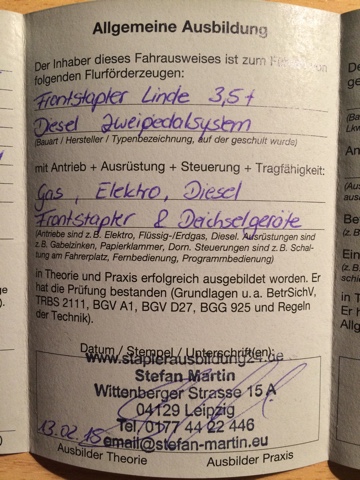 Allgemeine Ausbildung
Der Inhaber dieses Fahrausweises ist zum Führen von
folgenden Flurförderzeugen:
Frontstapler Linde 3,5t
Diesel Zweipedalsystem
(Bauart / Hersteller / Typenbezeichnung, auf der geschult wurde)
mit Antrieb + Ausrüstung + Steuerung + Tragfähigkeit:
Gas, Elektro, Diesel
Frontstapler & Deichselgeräte
(Antriebe sind z.B. Elektro, Flüssig-/Erdgas, Diesel. Ausrüstungen sind
z.B. Gabelzinken, Papierklammer, Dorn. Steuerungen sind z.B. Schal-
tung am Fahrerplatz, Fernbedienung, Programmbedienung)
in Theorie und Praxis erfolgreich ausgebildet worden. Er
hat die Prüfung bestanden (Grundlagen u. a. BetrSichV,
TRBS 2111, BGV A1, BGV D27, BGG 925 und Regeln
der Technik).
Datum / Stempel / Unterschrift(en):
www.staplerausbildung24.de
Stefan Martin
Wittenberger Strasse 15 A
04129 Leipzig
Tel. 0177 44 22 446
13.02.16
email@stefan-martin.eu
Ausbilder Theorie
Ausbilder Praxis